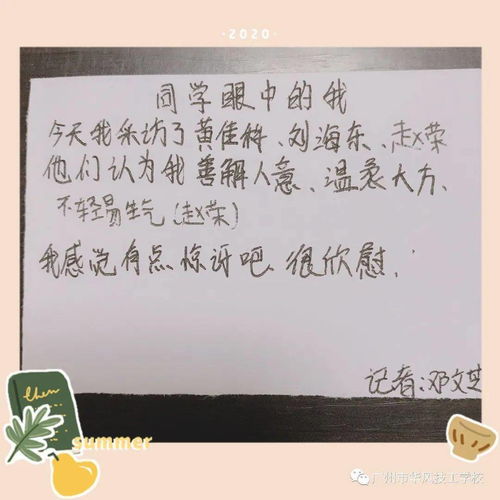 ·2020·
同学眼中的我
今天我采访了黄佳梅、刘海东、赵荣
他们认为我善解人意、温柔大方、
不轻易生气(赵荣)
我感觉有点惊讶吧、很欣慰.
记者:邓文芝
summer
广州市华风技工学校